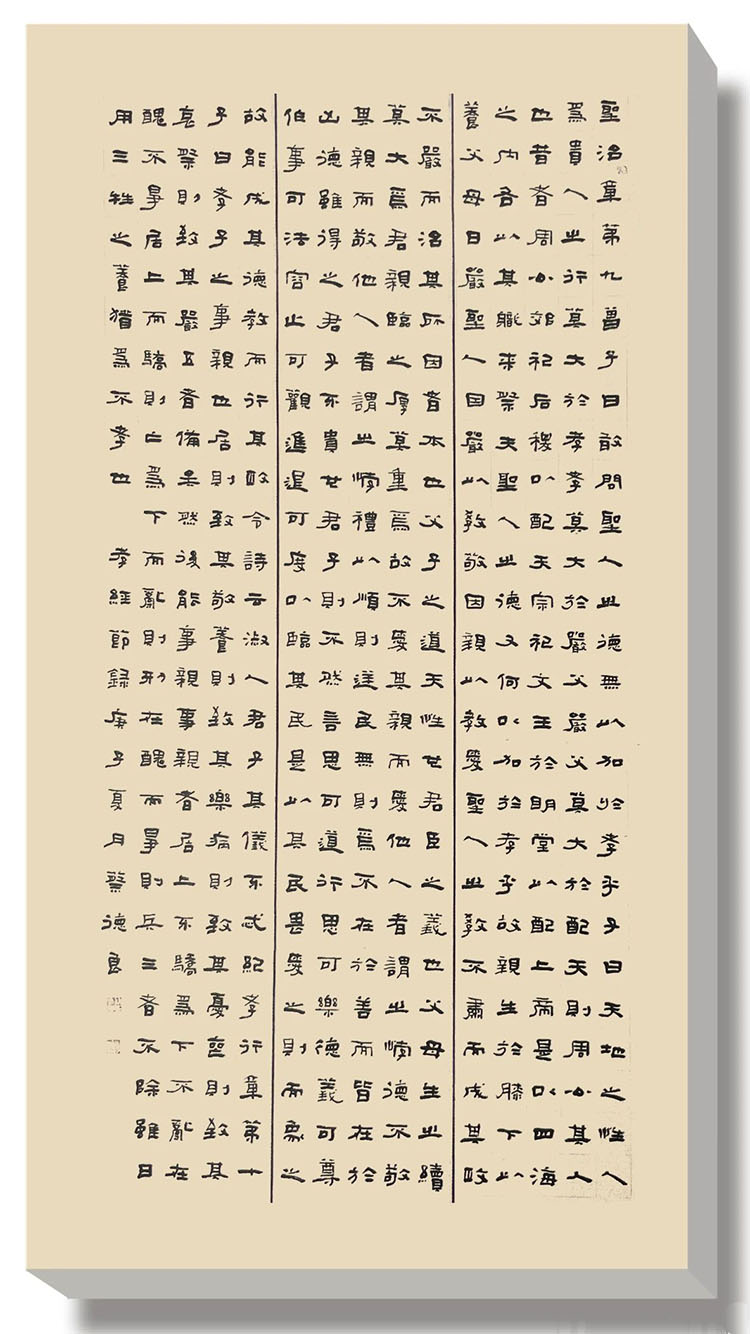 聖治章第九曾子曰敢問聖人之德無以加於孝乎子曰天地之性人
爲貴人之行莫大於孝孝莫大於嚴父嚴父莫大於配天則周公其人
也昔者周公郊祀后稷以配天宗祀文王於明堂以配上帝是以四海
之內各以其職來祭夫聖人之德又何以加於孝乎故親生於膝下以
養父母日嚴聖人因嚴以敎敬因親以敎愛聖人之敎不肅而成其政
不嚴而治其所因者本也父子之道天性也君臣之義也父母生之續
莫大焉君親臨之厚莫重焉故不愛其親而愛他人者謂之悖德不敬
其親而敬他人者謂之悖禮以順則逆民無則焉不在於善而皆在於
凶德雖得之君子不貴也君子則不然言思可道行思可樂德義可尊
作事可法容止可觀進退可度以臨其民是以其民畏愛之則而象之
故能成其德敎而行其政令詩云淑人君子其儀不忒紀孝行章第十
子曰孝子之事親也居則致其敬養則致其樂病則致其憂喪則致其
哀祭則致其嚴五者備矣然後能事親事親者居上不驕爲下不亂在
醜不爭居上而驕則亡爲下而亂則刑在醜而爭則兵三者不除雖日
用三牲之養猶爲不孝也 孝經節錄庚子夏月德良